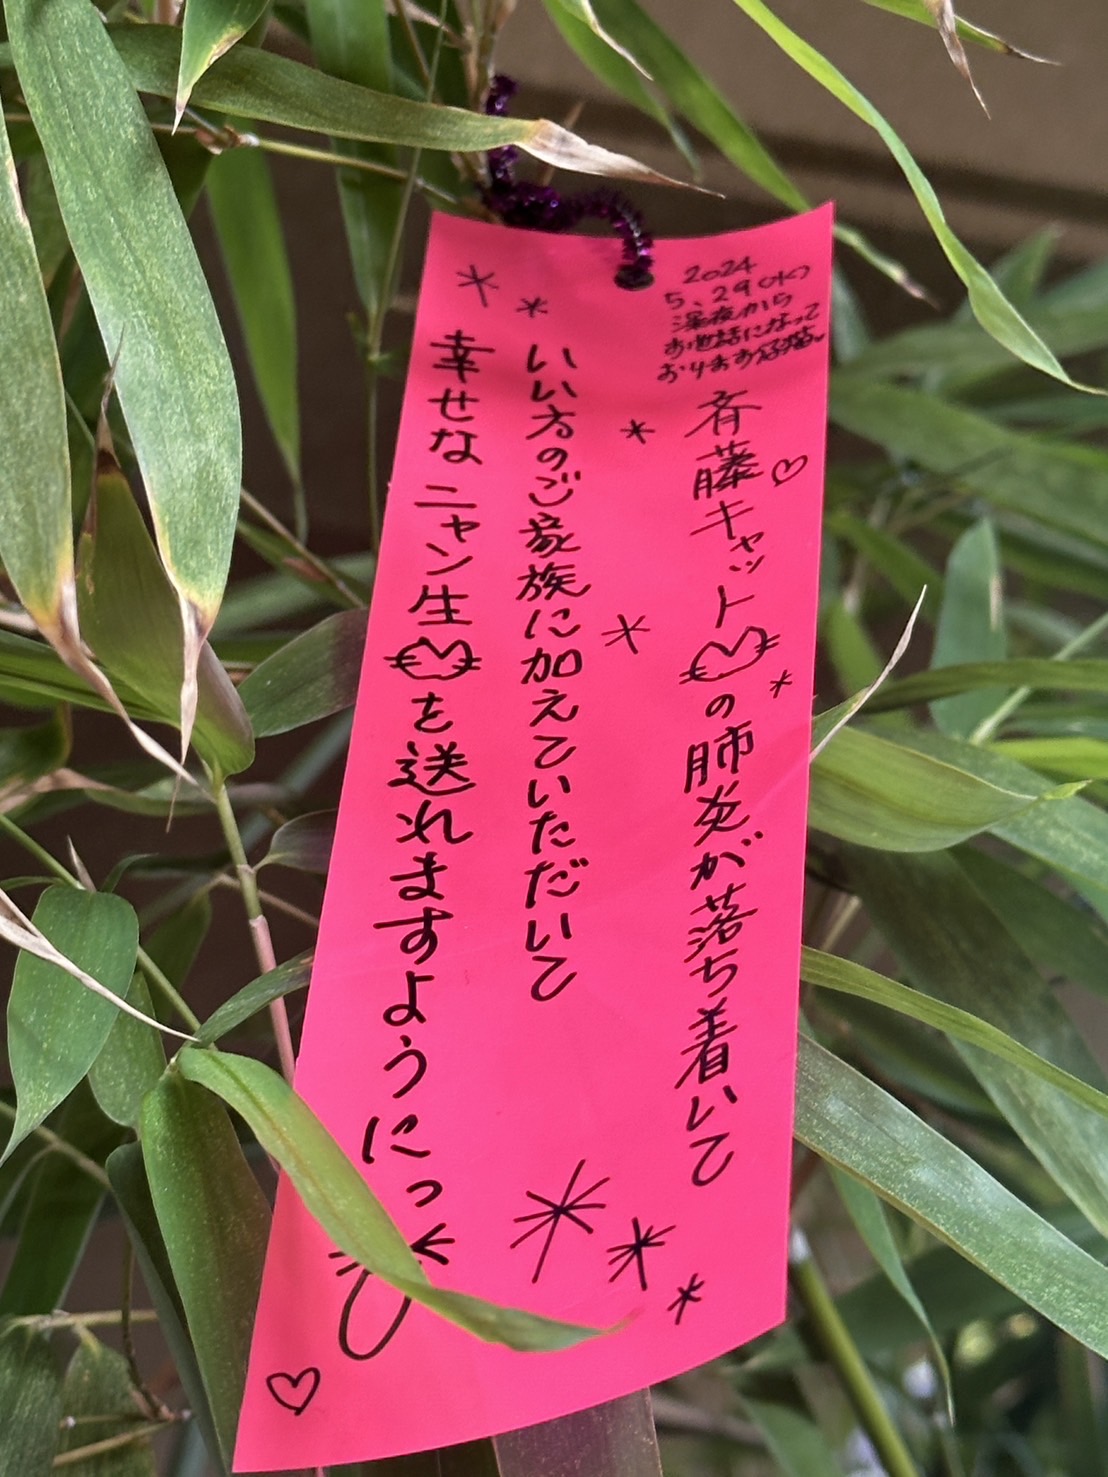 2024
5.29(水)
深夜から
お世話になって
おります仔猫♥
斉藤キャットの肺炎が落ち着いて
いい方のご家族に加えていただいて
幸せなニャン生を送れますようにっ